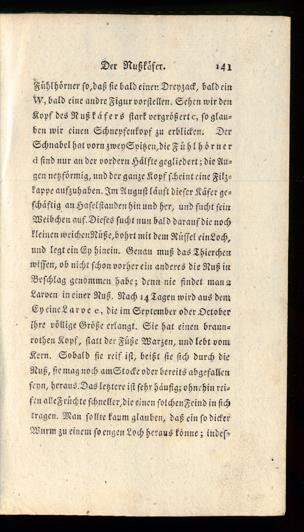 Der Nußkäfer. 141
Fühlhörner so, daß sie bald einen Dreyzack, bald ein
W, bald eine andre Figur vorstellen. Sehen wir den
Kopf des Nußkäfers stark vergrößert c, so glau-
ben wir einen Schnepfenkopf zu erblicken. Der
Schnabel hat vorn zwey Spitzen, die Fühlhörner
d sind nur an der vordern Hälfte gegliedert; die Au-
gen netzförmig, und der ganze Kopf scheint eine Filz-
kappe aufzuhaben. Im August läuft dieser Käfer ge-
schäftig an Haselstauden hin und her, und sucht sein
Weibchen auf. Dieses sucht nun bald darauf die noch
kleinen weichen Nüße, bohrt mit dem Rüssel ein Loch,
und legt ein Ey hinein. Genau muß das Thierchen
wissen, ob nicht schon vorher ein anderes die Nuß in
Beschlag genommen habe; denn nie findet man 2
Larven in einer Nuß. Nach 14 Tagen wird aus dem
Ey eine Larve e, die im September oder October
ihre völlige Größe erlangt. Sie hat einen braun-
rothen Kopf, statt der Füße Warzen, und lebt vom
Kern. Sobald sie reif ist, beißt sie sich durch die
Nuß, sie mag noch am Stocke oder bereits abgefallen
seyn, heraus. Das letztere ist sehr häufig; ohnehin rei-
fen alle Früchte schneller, die einen solchen Feind in sich
tragen. Man sollte kaum glauben, daß ein so dicker
Wurm zu einem so engen Loch heraus könne; indes-